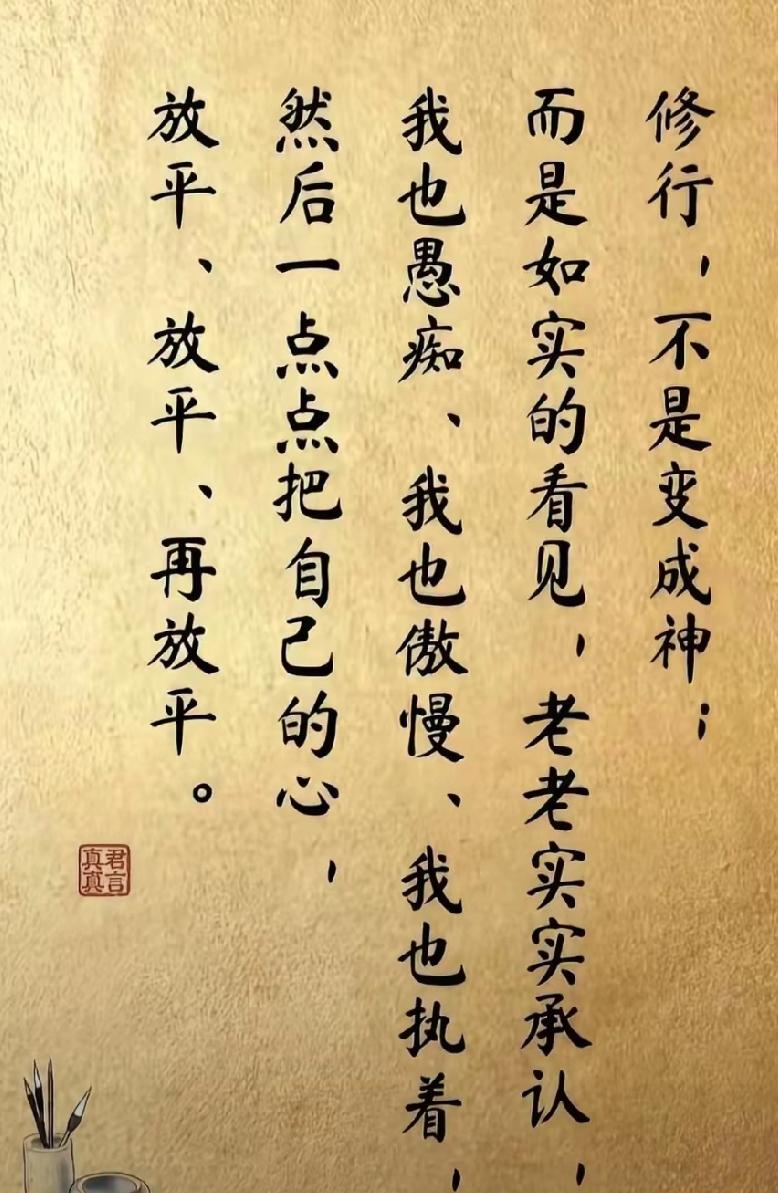 修行，不是变成神；
而是如实的看见，老老实实承认，
我也愚痴、我也傲慢、我也执着，
然后一点点把自己的心，
放平、放平、再放平。
君言
真真